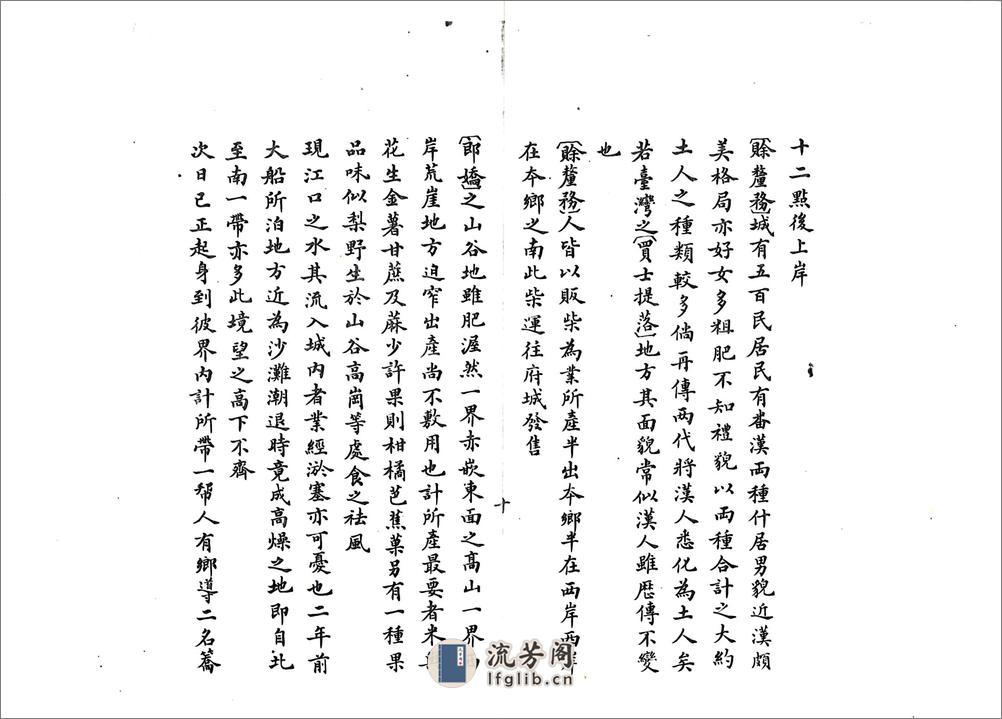 十二點後上岸
〔賒釐務〕城有五百民居民有畨漢两種什居男貌近漢頗
美格局亦好女多粗肥不知禮貌以两種合計之大約
土人之種類較多倘再傳两代將漢人悉化為土人矣
若臺灣之〔買士提落〕地方其面貌常似漢人雖歷傳不變
也
〔賒釐務〕人皆以販柴為業所產半出本鄉半在西岸西
在本鄉之南此柴運往府城發售
十
〔郎嬌〕之山谷地雖肥渥然一界赤嵌東面之高山一界
岸荒崖地方迫窄出產尚不敷用也計所產最要者米
花生金薯甘蔗及蔴少許果則柑橘芭蕉菓另有一種果
品味似梨野生於山谷高崗等處食之祛風
現江口之水其流入城內者業經淤塞亦可憂也二年前
大船所泊地方近為沙灘潮退時竟成高燥之地即自北
至南一帶亦多此境望之高下不齊
次日已正起身到彼界內計所帶一帮人有鄉導二名籌
流芳阁
lfglib.cn